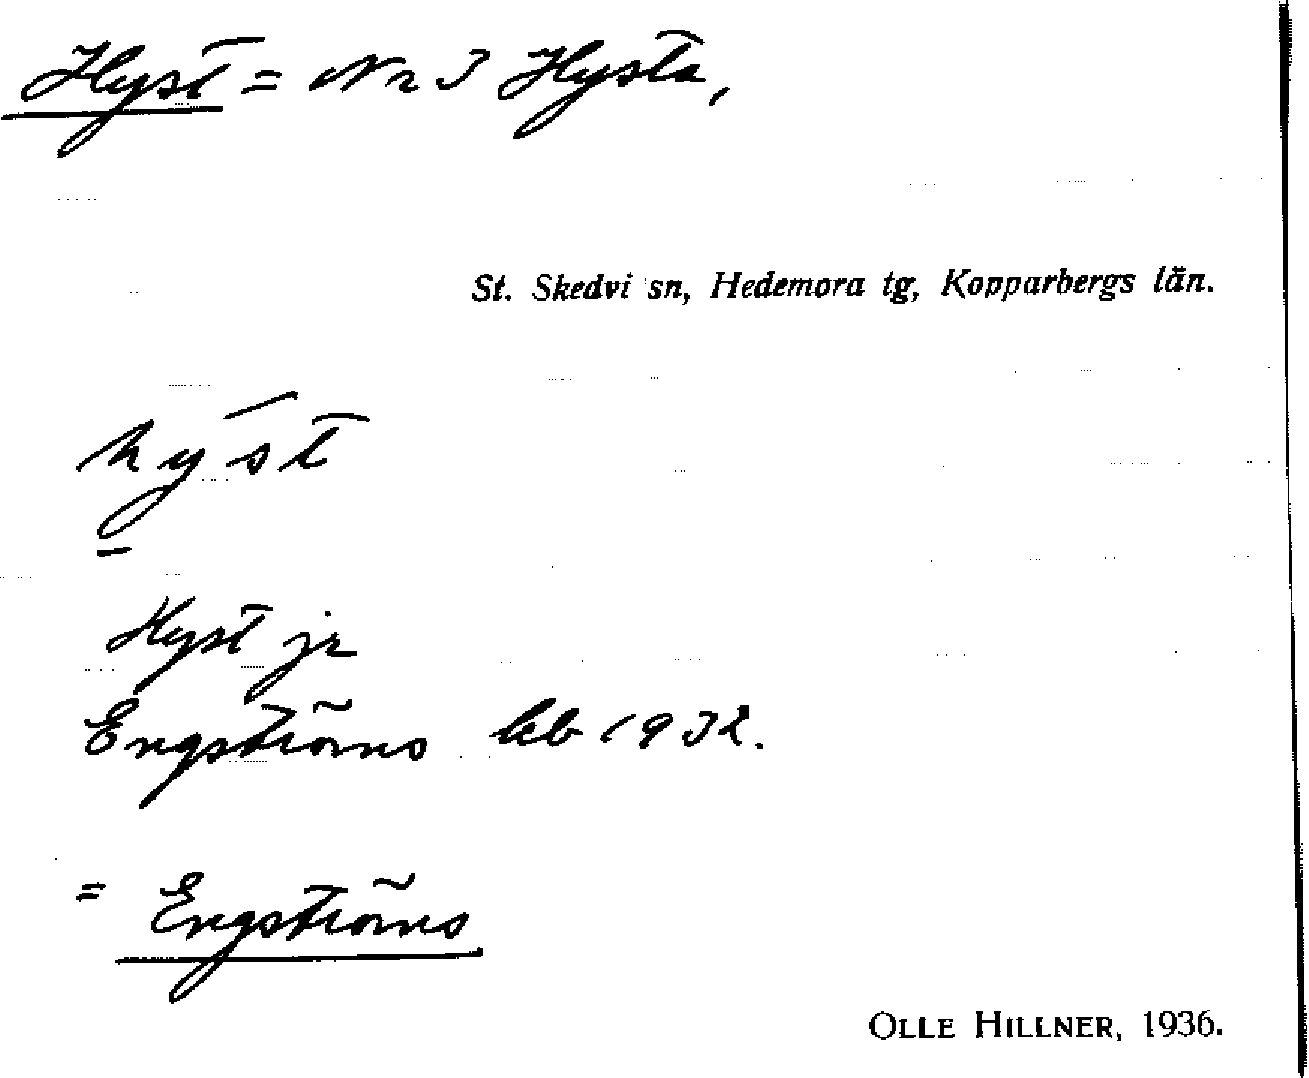 Hyst = Nr 3 Hysta,
St. Skedvi sn, Hedemora tg, Kopparbergs län.
hyst
Hyst jr
Engströms kb 1932.
= Engströms
OLLE HILLNER, 1936.